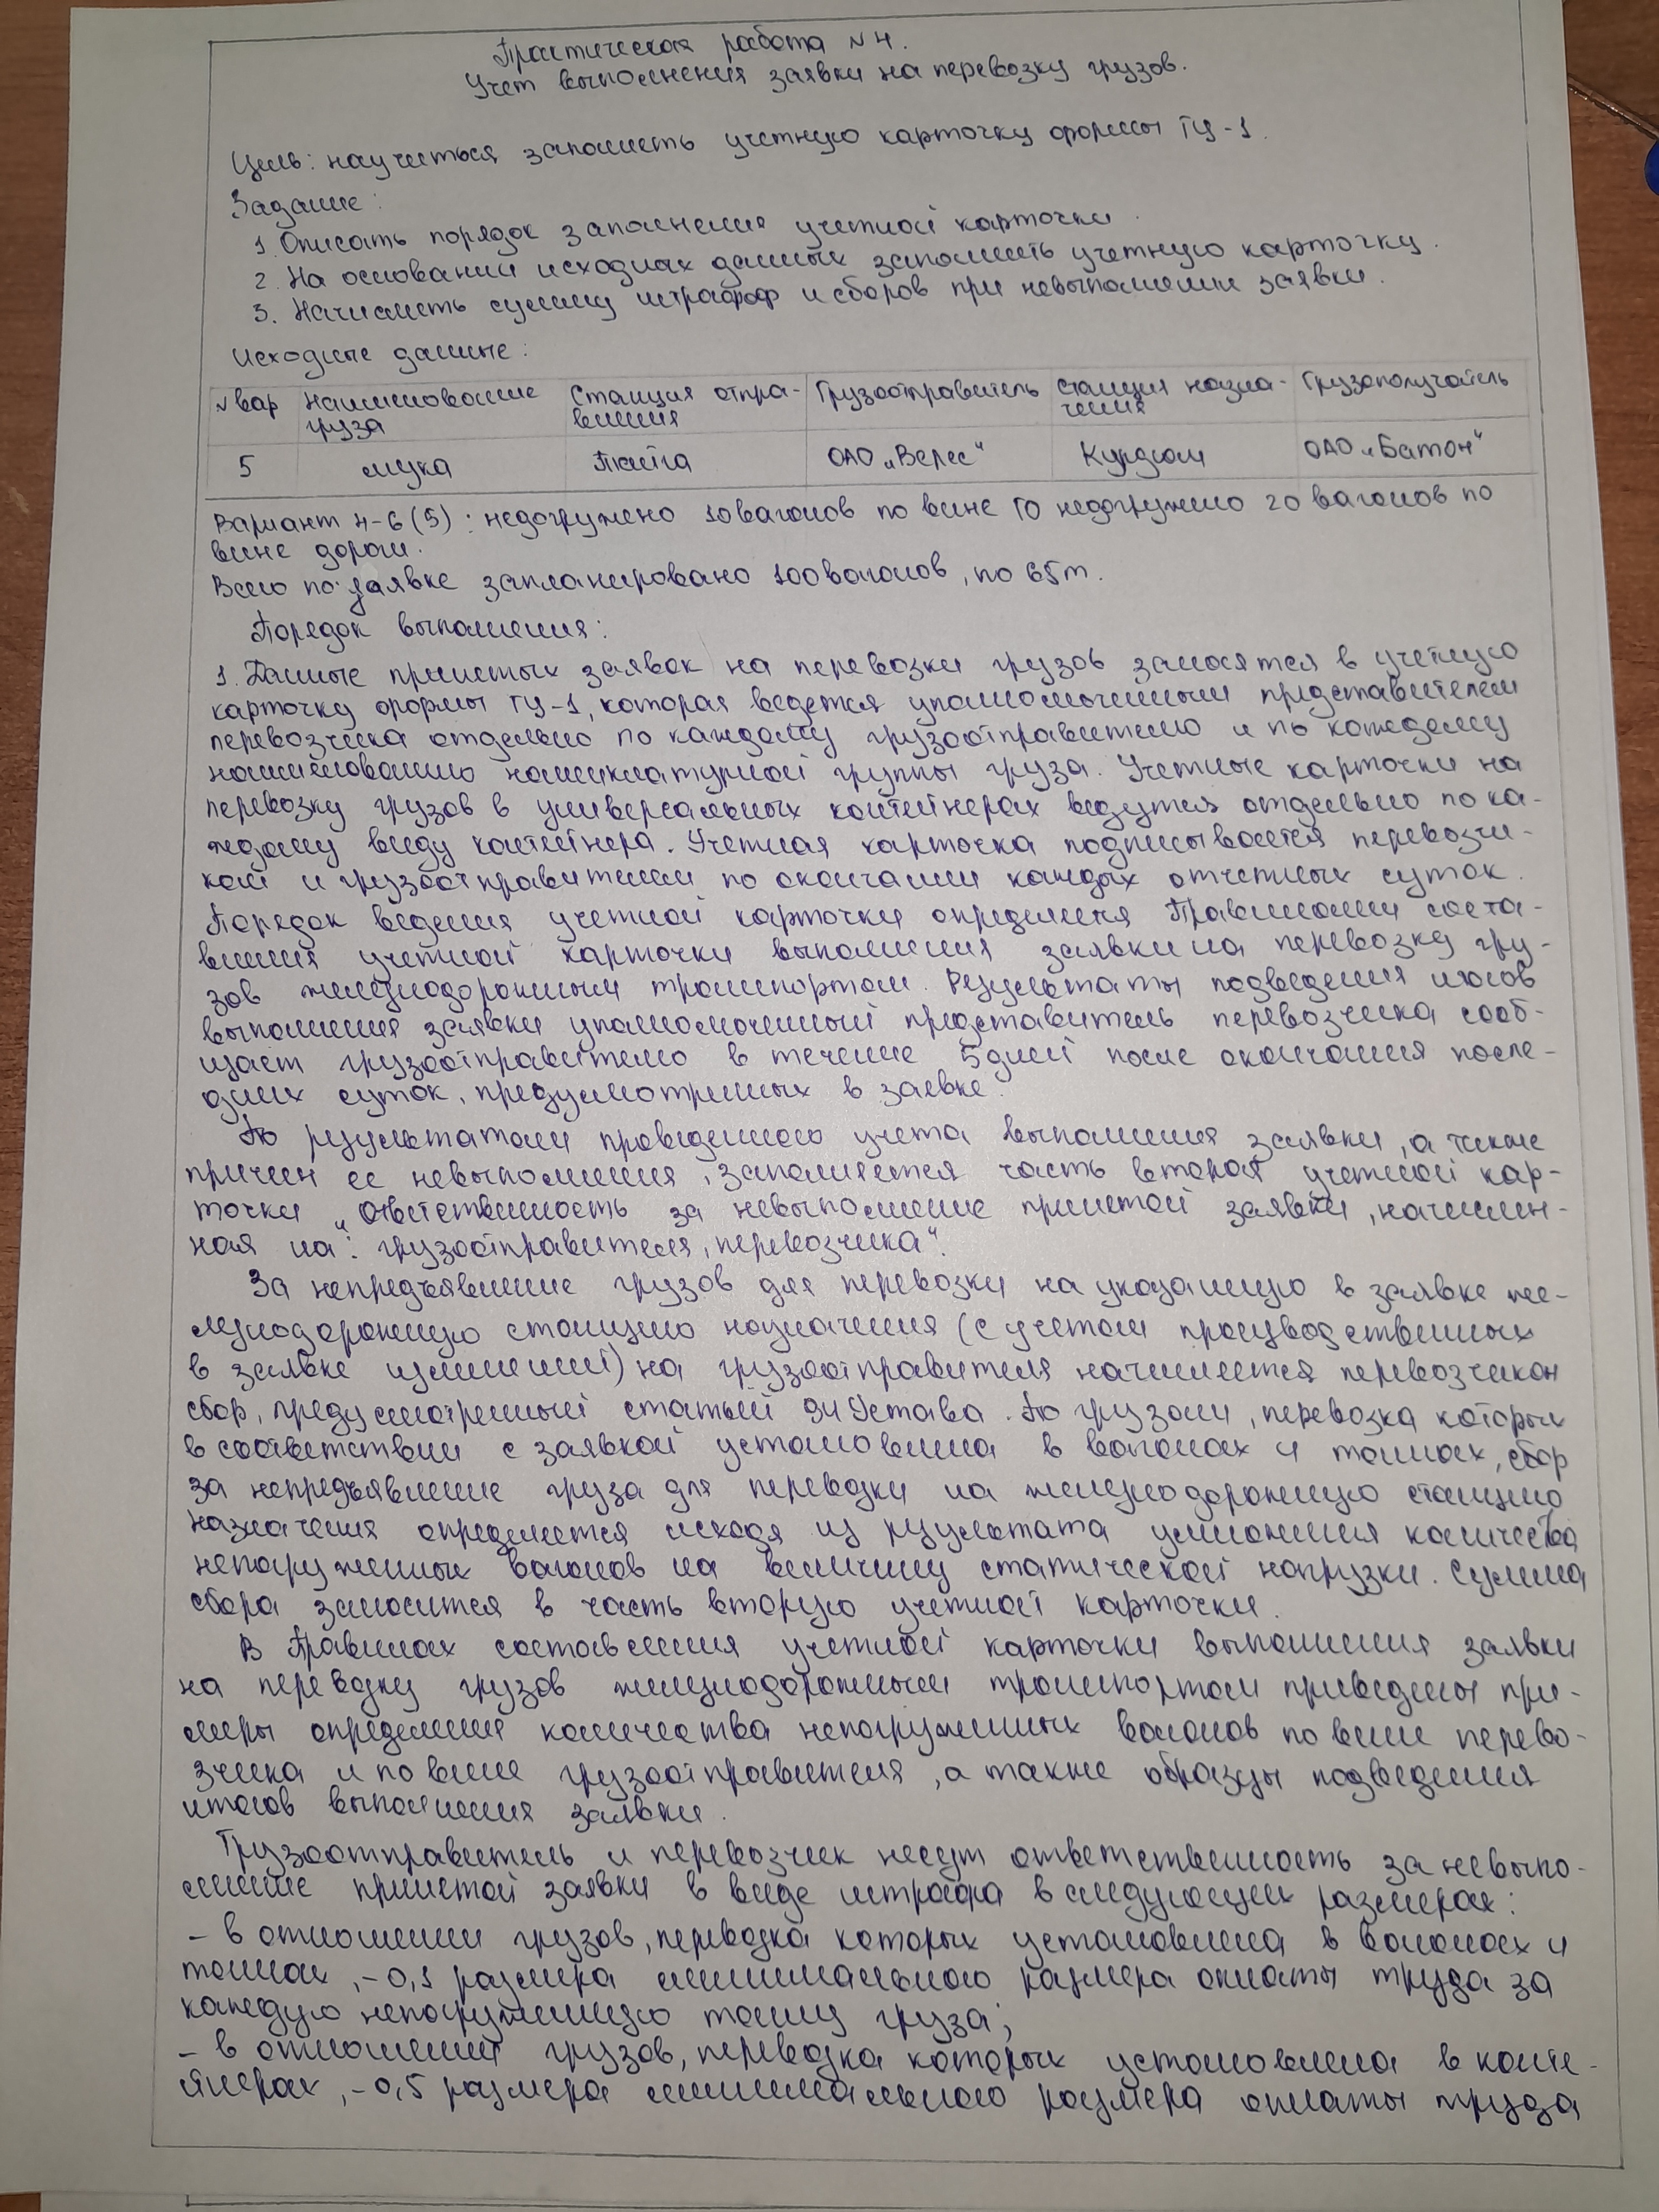 Практическая работа №4.
Учет выполнения заявки на перевозку грузов.
Цель: научиться заполнять учетную карточку формы ГУ-1.
Задание:
1. Описать порядок заполнения учетной карточки.
2. На основании исходных данных заполнить учетную карточку.
3. Начислить сумму штрафоф и сборов при невыполнении заявки.
Исходные данные:
№ вар Наименование груза Станция отпра-вления Грузоотправитель Станция назна-чения Грузополучатель
5 мука Тайга ОАО „Велес“ Курдюм ОАО „Батон“
Вариант 4-6 (5): недогружено 10 вагонов по вине ГО недогружено 20 вагонов по
вине дороги.
Всего по заявке запланировано 100 вагонов, по 65т.
Порядок выполнения:
1. Данные принятых заявок на перевозки грузов заносятся в учетную
карточку формы ГУ-1, которая ведется уполномоченным представителем
перевозчика отдельно по каждому грузоотправителю и по каждому
наименованию номенклатурной группы груза. Учетные карточки на
перевозку грузов в универсальных контейнерах ведутся отдельно по ка-
ждому виду контейнера. Учетная карточка подписывается перевозчи-
ком и грузоотправителем по окончании каждых отчетных суток.
Порядок ведения учетной карточки определяется Правилами соста-
вления учетной карточки выполнения заявки на перевозку гру-
зов железнодорожным транспортом. Результаты подведения итогов
выполнения заявки уполномоченный представитель перевозчика сооб-
щает грузоотправителю в течение 5 дней после окончания после-
дних суток, предусмотренных в заявке.
По результатам проведенного учета выполнения заявки, а также
причин ее невыполнения, заполняется часть вторая учетной кар-
точки „Ответственность за невыполнение принятой заявки, начислен-
ная на: грузоотправителя, перевозчика“.
За непредъявление грузов для перевозки на указанную в заявке же-
лезнодорожную станцию назначения (с учетом производственных
в заявке изменений) на грузоотправителя начисляется перевозчиком
сбор, предусмотренный статьей 94 Устава. По грузам, перевозка которых
в соответствии с заявкой установлена в вагонах и тоннах, сбор
за непредъявление груза для перевозки на железнодорожную станцию
назначения определяется исходя из результата умножения количества
непогруженных вагонов на величину статической нагрузки. Сумма
сбора заносится в часть вторую учетной карточки.
В Правилах составления учетной карточки выполнения заявки
на перевозку грузов железнодорожным транспортом приведены при-
меры определения количества непогруженных вагонов по вине перево-
зчика и по вине грузоотправителя, а также образцы подведения
итогов выполнения заявки.
Грузоотправитель и перевозчик несут ответственность за невыпо-
лнение принятой заявки в виде штрафа в следующих размерах:
- в отношении грузов, перевозка которых установлена в вагонах и
тоннах, - 0,1 размера минимального размера оплаты труда за
каждую непогруженную тонну груза;
- в отношении грузов, перевозка которых установлена в конте-
йнерах, - 0,5 размера минимального размера оплаты труда